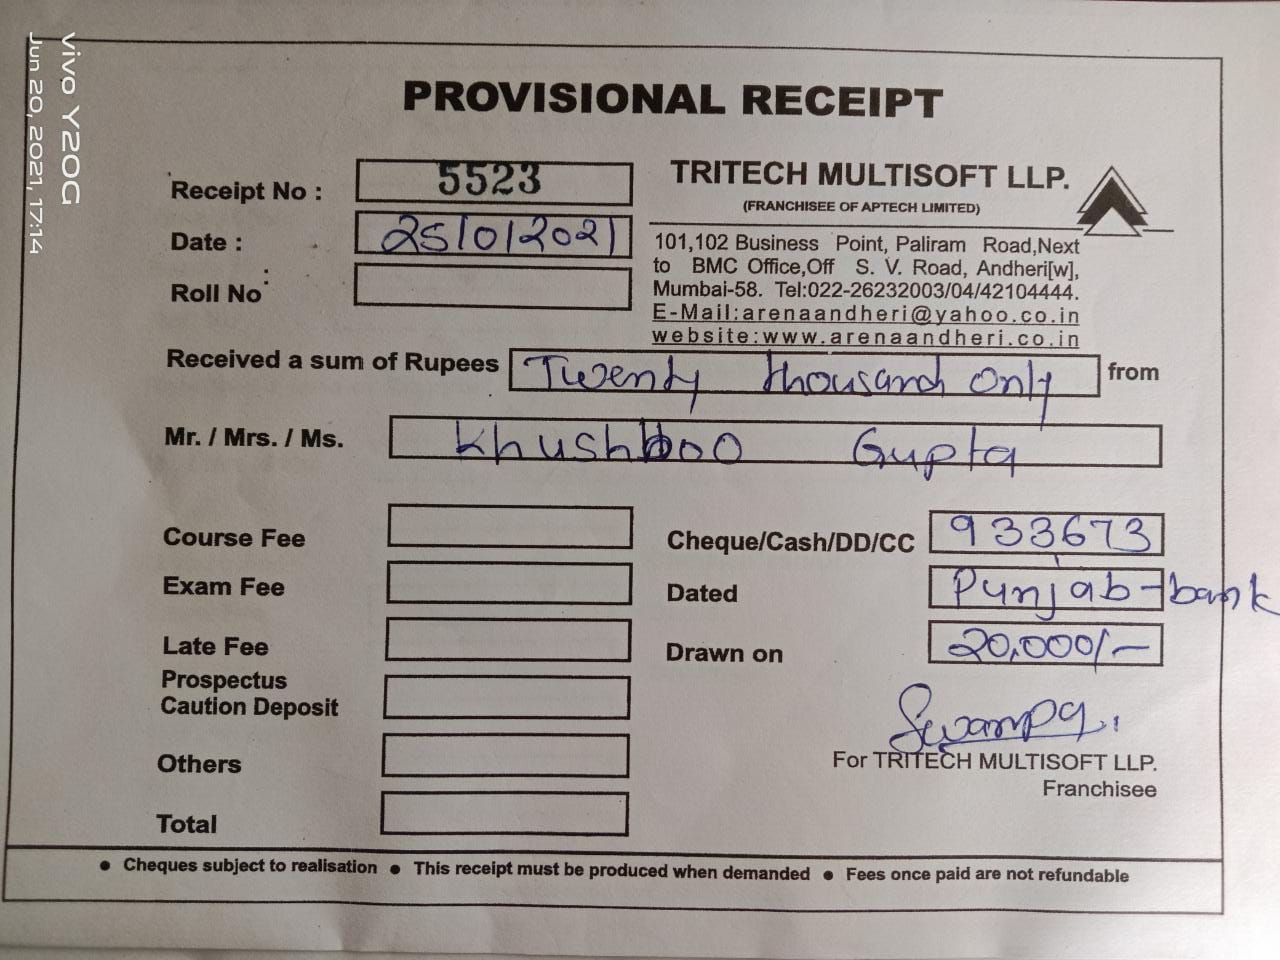 vivo Y20G
Jun 20, 2021, 17:14
PROVISIONAL RECEIPT
Receipt No : 5523
Date : 25/01/2021
Roll No :
TRITECH MULTISOFT LLP.
(FRANCHISEE OF APTECH LIMITED)
101,102 Business Point, Paliram Road,Next
to BMC Office,Off S. V. Road, Andheri[w],
Mumbai-58. Tel:022-26232003/04/42104444.
E-Mail:arenaandheri@yahoo.co.in
website:www.arenaandheri.co.in
Received a sum of Rupees Twenty thousand only from
Mr. / Mrs. / Ms. Khushboo Gupta
Course Fee
Exam Fee
Late Fee
Prospectus
Caution Deposit
Others
Total
Cheque/Cash/DD/CC 933673
Dated Punjab-bank
Drawn on 20,000/-
For TRITECH MULTISOFT LLP.
Franchisee
• Cheques subject to realisation • This receipt must be produced when demanded • Fees once paid are not refundable